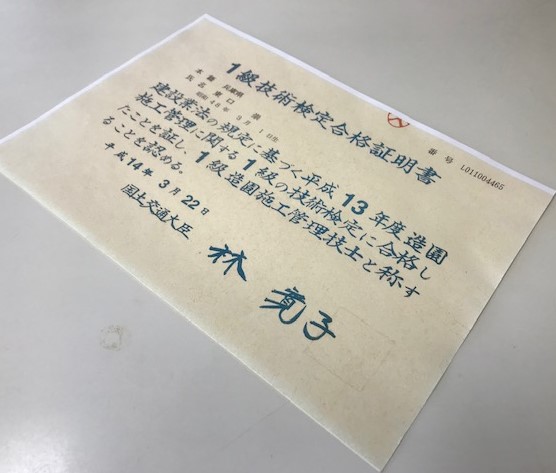 1級技術検定合格証明書
番号 L011004465
本籍 兵庫県
氏名 東口
昭和48年3月1日生
建設業法の規定に基づく平成13年度造園
施工管理に関する1級の技術検定に合格し
たことを証し、1級造園施工管理技士と称す
ることを認める。
平成14年3月22日
国土交通大臣
林寛子